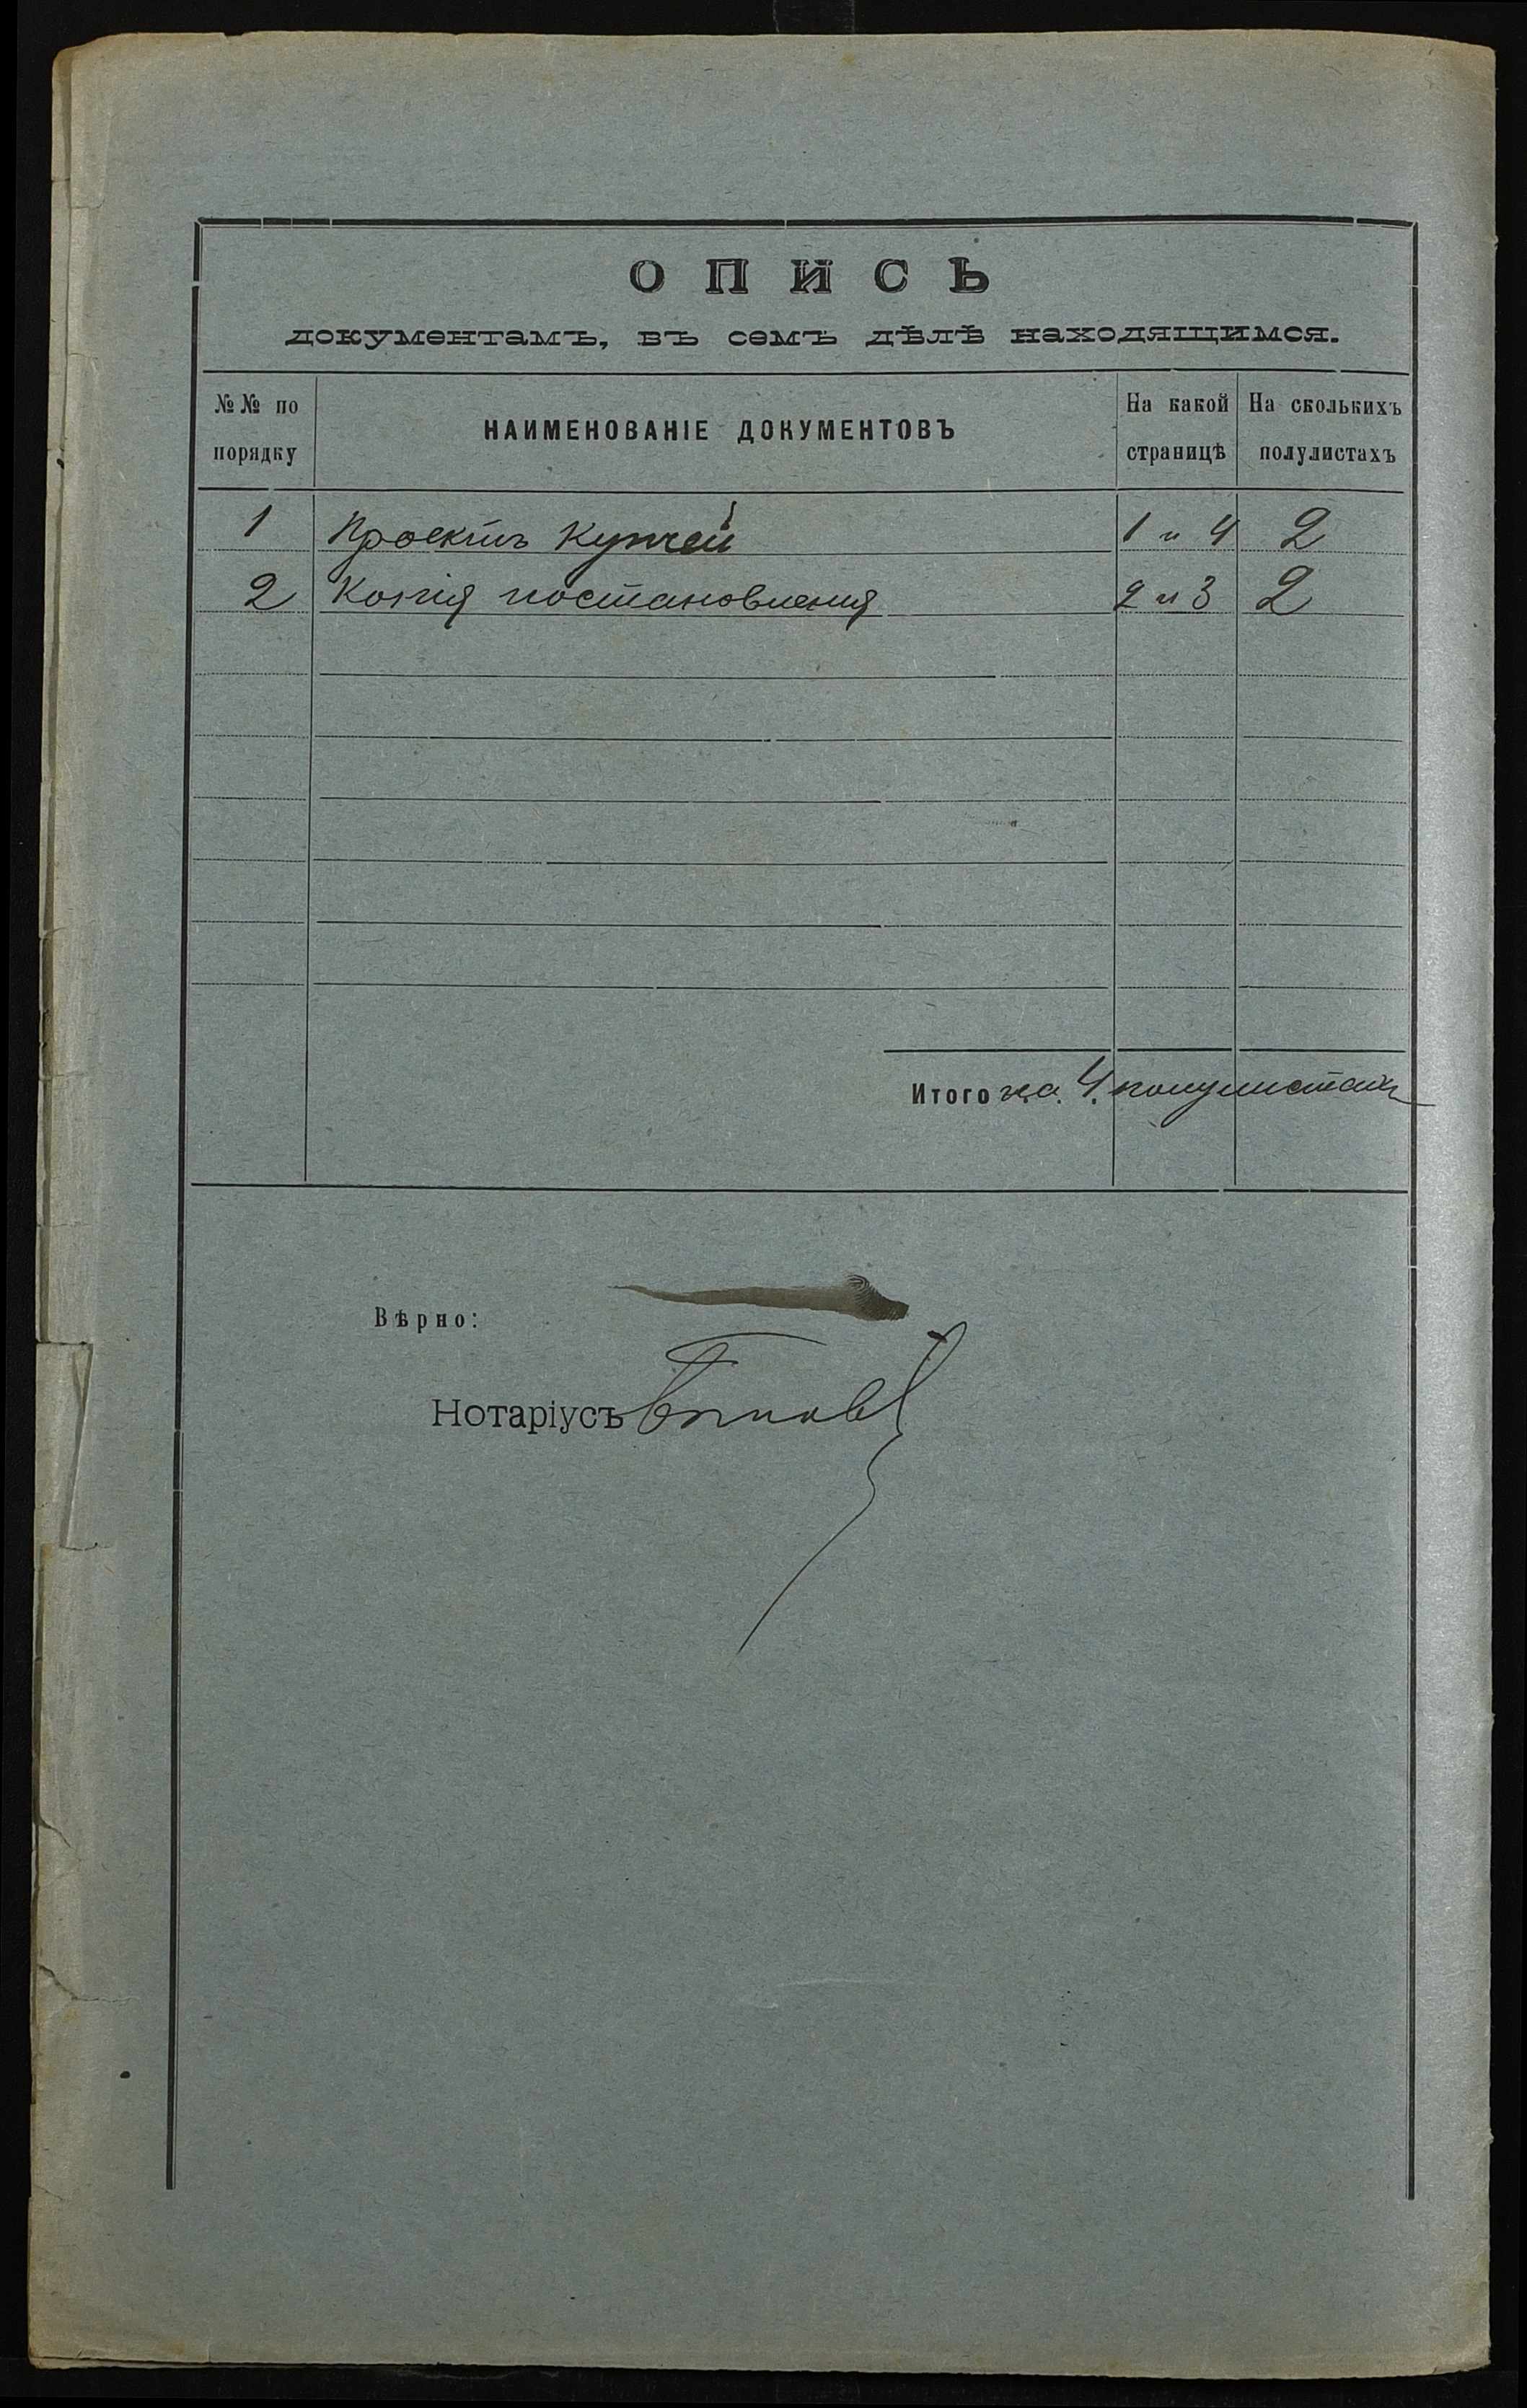 ОПИСЬ
документамъ, въ семъ дѣлѣ находящимся.
№№ по порядку НАИМЕНОВАНІЕ ДОКУМЕНТОВЪ На какой страницѣ На сколькихъ полулистахъ
1 Проектъ Купчей 1 и 4 2
2 Копія постановленія 2 и 3 2
Итого на 4 полулистахъ
Вѣрно:
Нотаріусъ